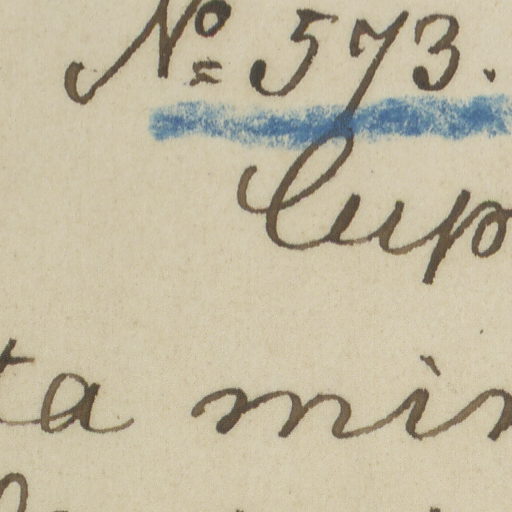 № 573.
Cup
ta min